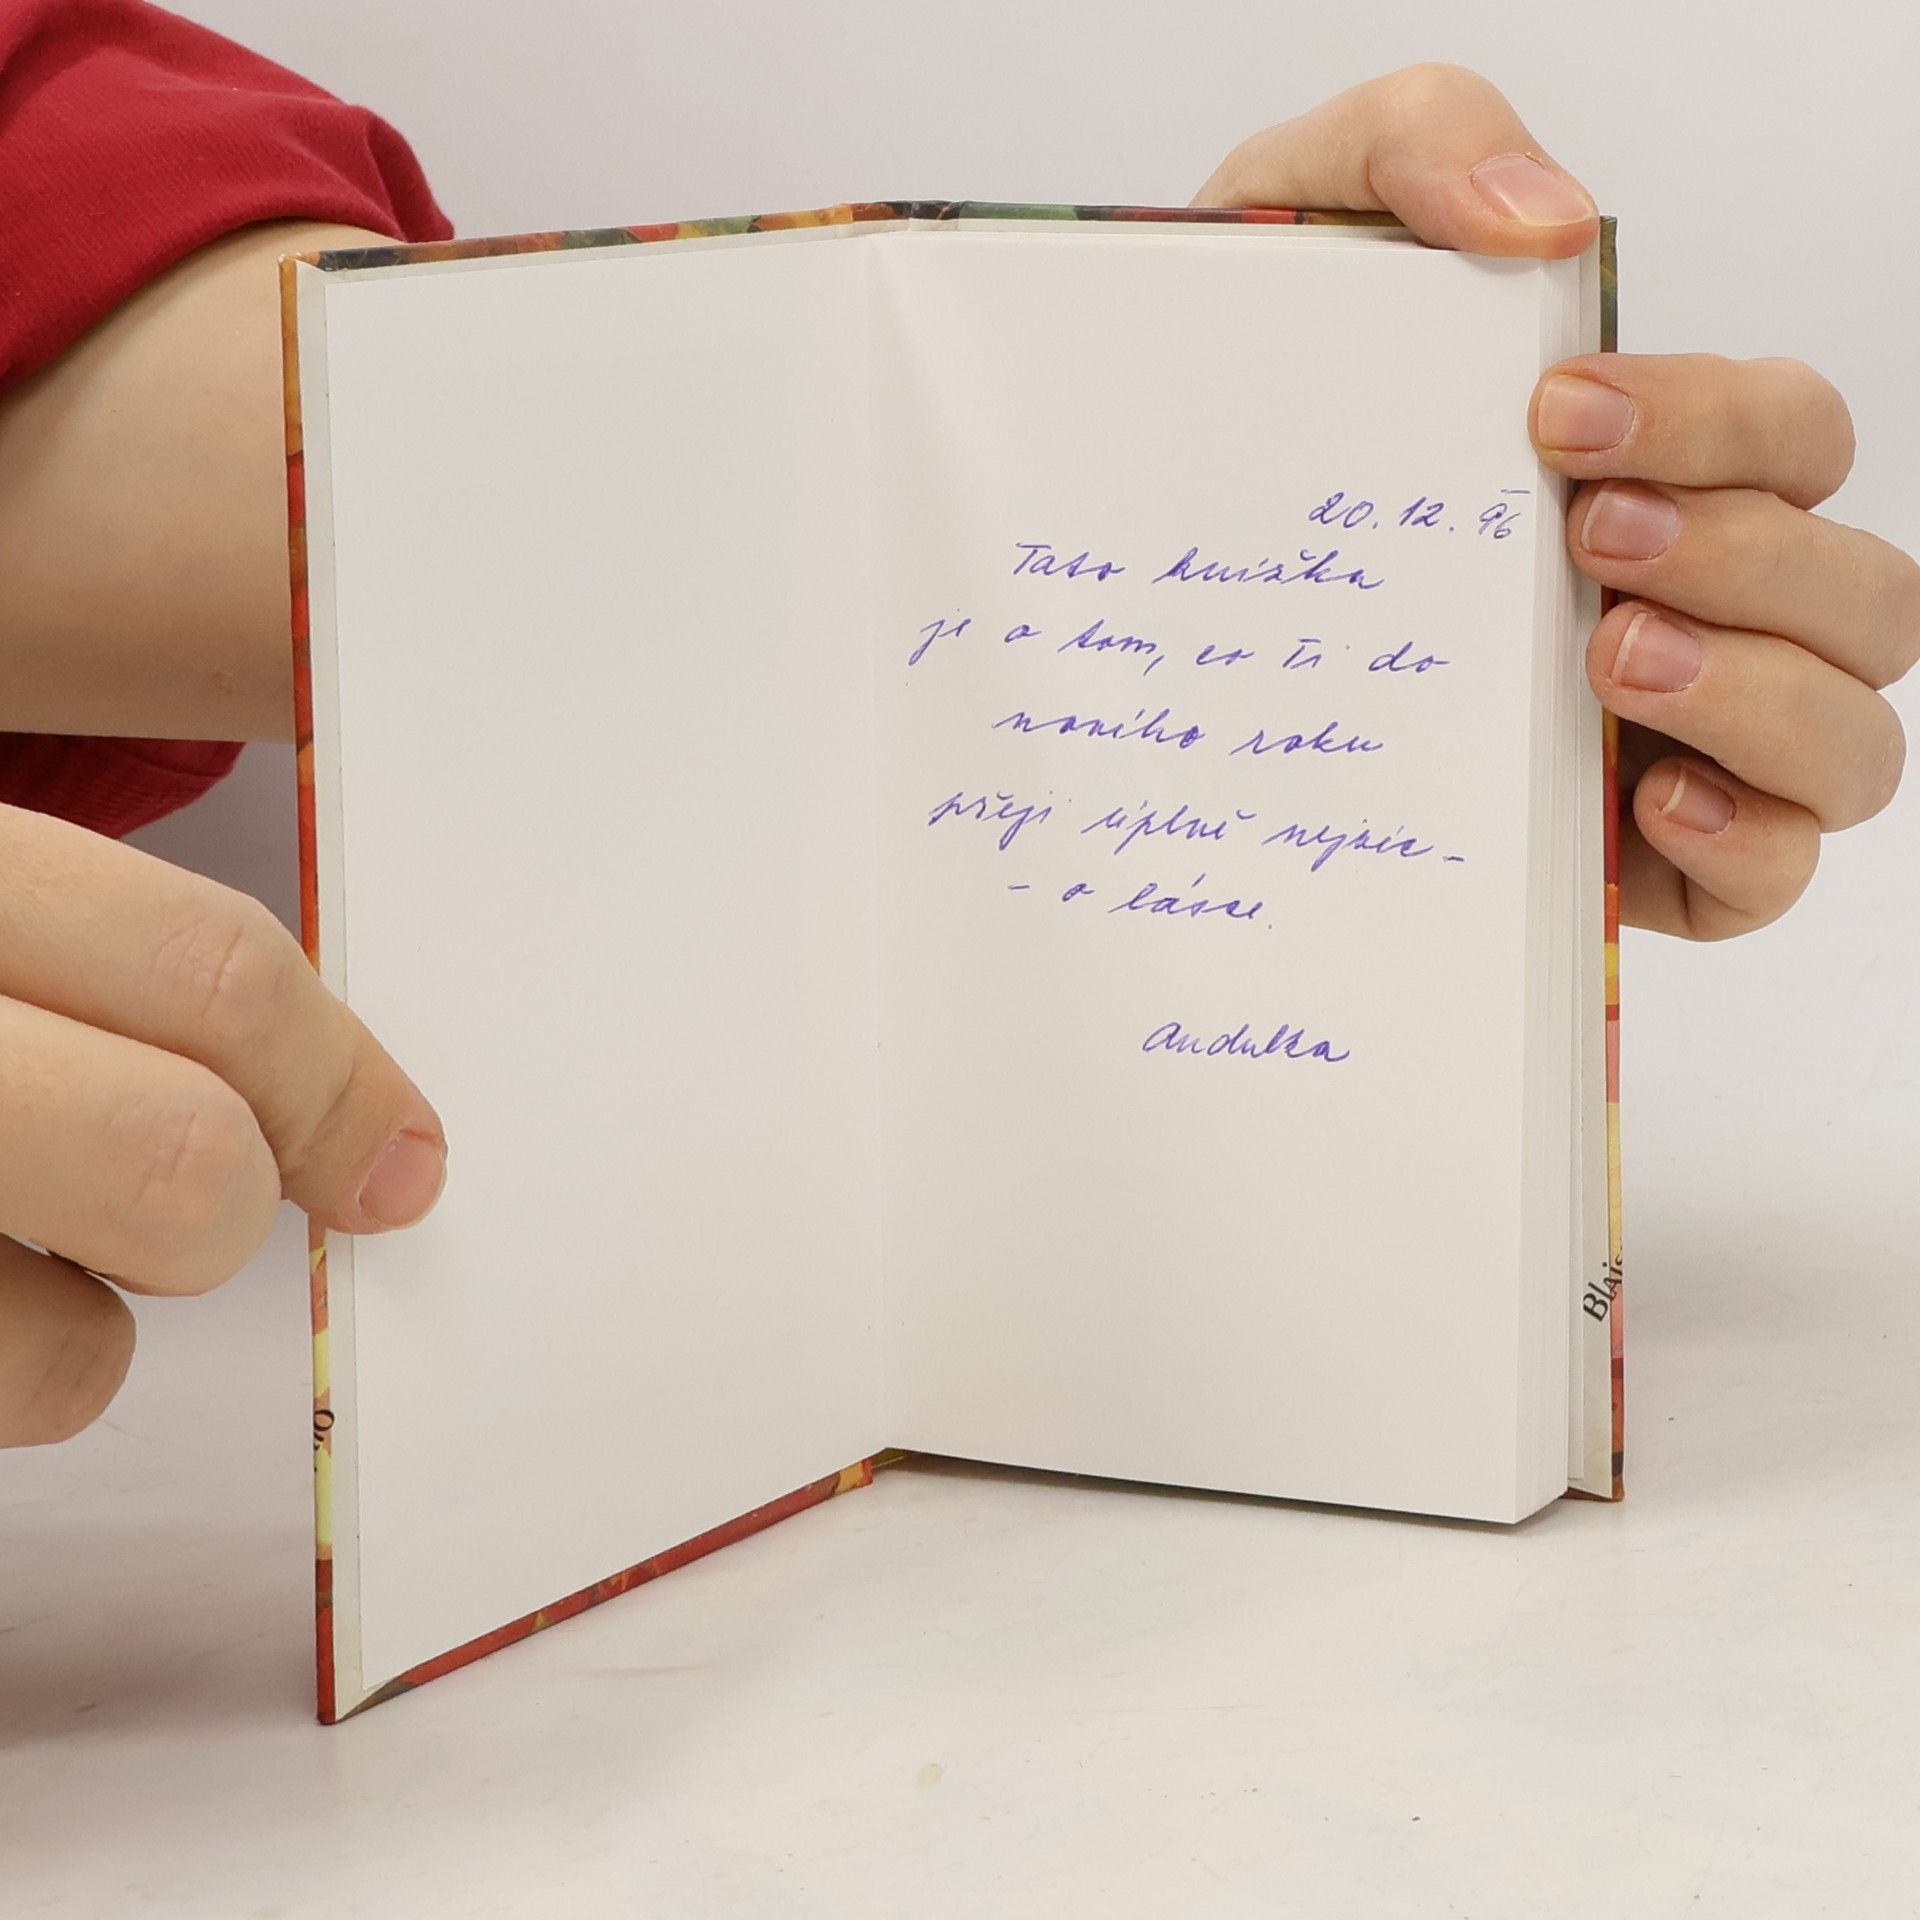 20. 12. 96
Tato knížka
je o tom, co Ti do
nového roku
přeji úplně nejvíc -
- o lásce.
Andulka